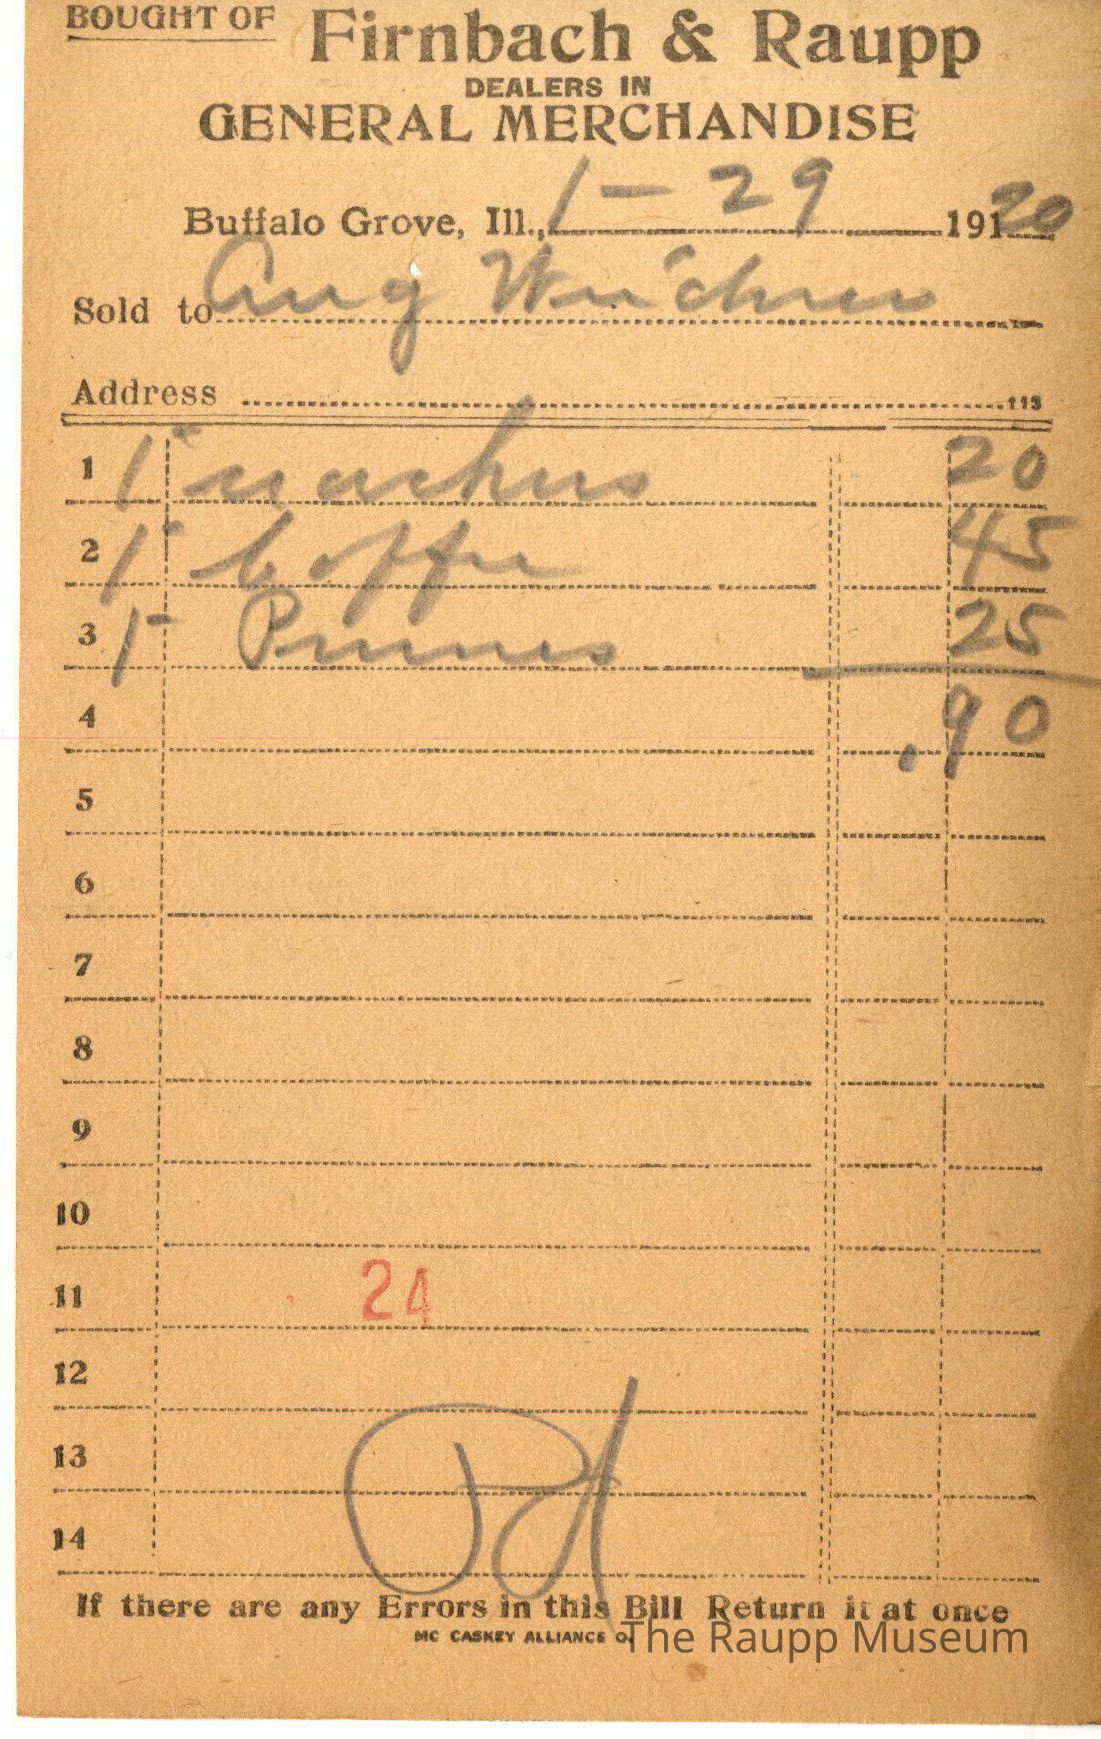 BOUGHT OF Firnbach & Raupp
DEALERS IN
GENERAL MERCHANDISE
Buffalo Grove, Ill., 1-29 191 20
Sold to Aug
Address 113
1 1 20
2 1 Coffe 45
3 1 Prunes 25
4 .90
5
6
7
8
9
10
11 24
12
13 Pd
14
If there are any Errors in this Bill Return it at once
MC CASKEY ALLIANCE O.
The Raupp Museum